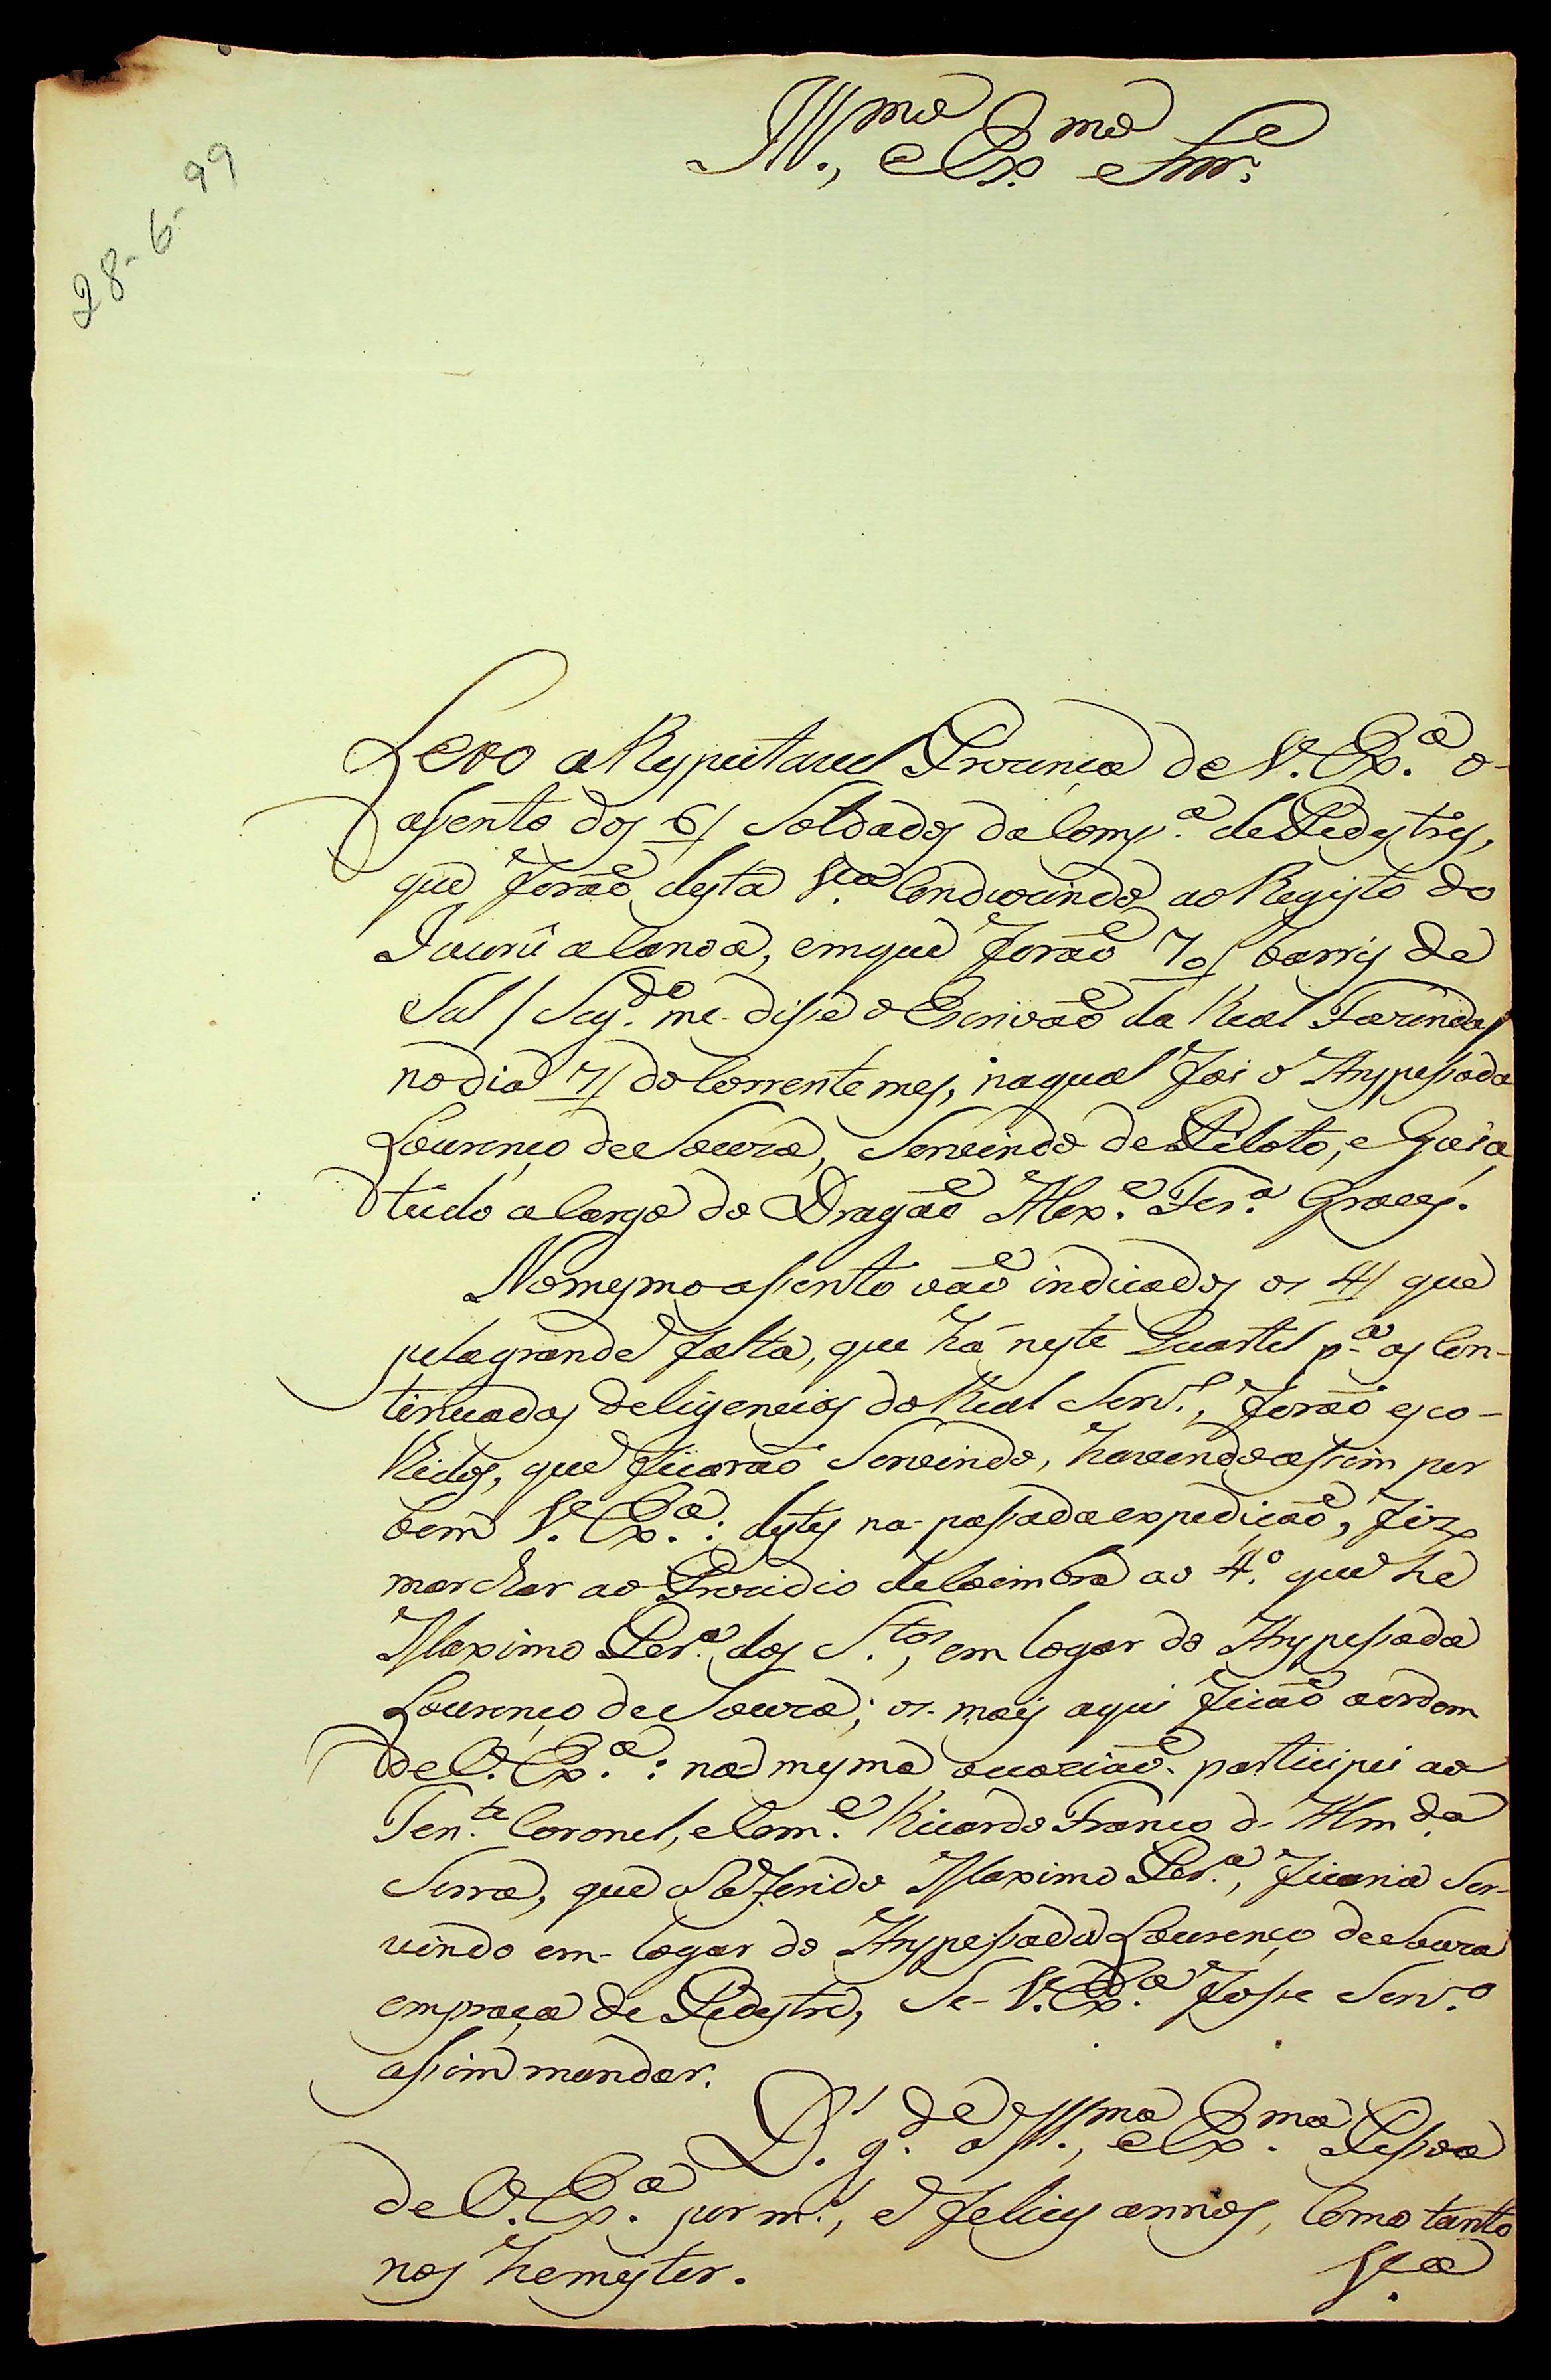 28-6-99
Ill.mo, e Ex.mo Snr.e
Levo a Respeitavel Prezença de V. Ex.ª o
asento dos 6/ Soldados da Comp.ª de Pedestres,
que forão desta V.ª Conduzindo ao Registo do
Jaurû a Canoa, em que forão 70/ barris de
Sal / Seg.do me disse o Escrivão da Real Fazenda/
no dia 7/ do Corrente mes, na qual foi o Anspessada
Lourenço de Souza, Servindo de Piloto, e Guia,
tudo a Cargo do Dragão Alex.e Fer.ª Graces.
No mesmo assento vão indicados os 4/ que
pela grande falta, que há neste Quartel p.ª as Con-
tinuadas deligencias do Real Serv.º, forão esco-
lhidos, que ficarão Servindo, havendo assim por
bem V. Ex.ª: destes na passada expedição, fiz
marchar ao Prezidio de Coimbra ao 4.º que hé
Maximo Per.ª dos S.tos, em logar do Anspessada
Lourenço de Souza; os mais aqui ficão a ordem
de V. Ex.ª: na mesma occazião participei ao
Ten.te Coronel, e Com.e Ricardo Franco d' Alm.da
Serra, que o Referido Maximo Per.ª, ficaria Ser-
vindo em logar do Anspessada Lourenço de Souza
em praça de Pedestre, Se V. Ex.ª fosse Serv.º
assim mandar.
D.s g.de a Ill.ma, e Ex.ma Pessoa
de V. Ex.ª por m.s, e felices annos, Como tanto
nos he mester.
V.ª